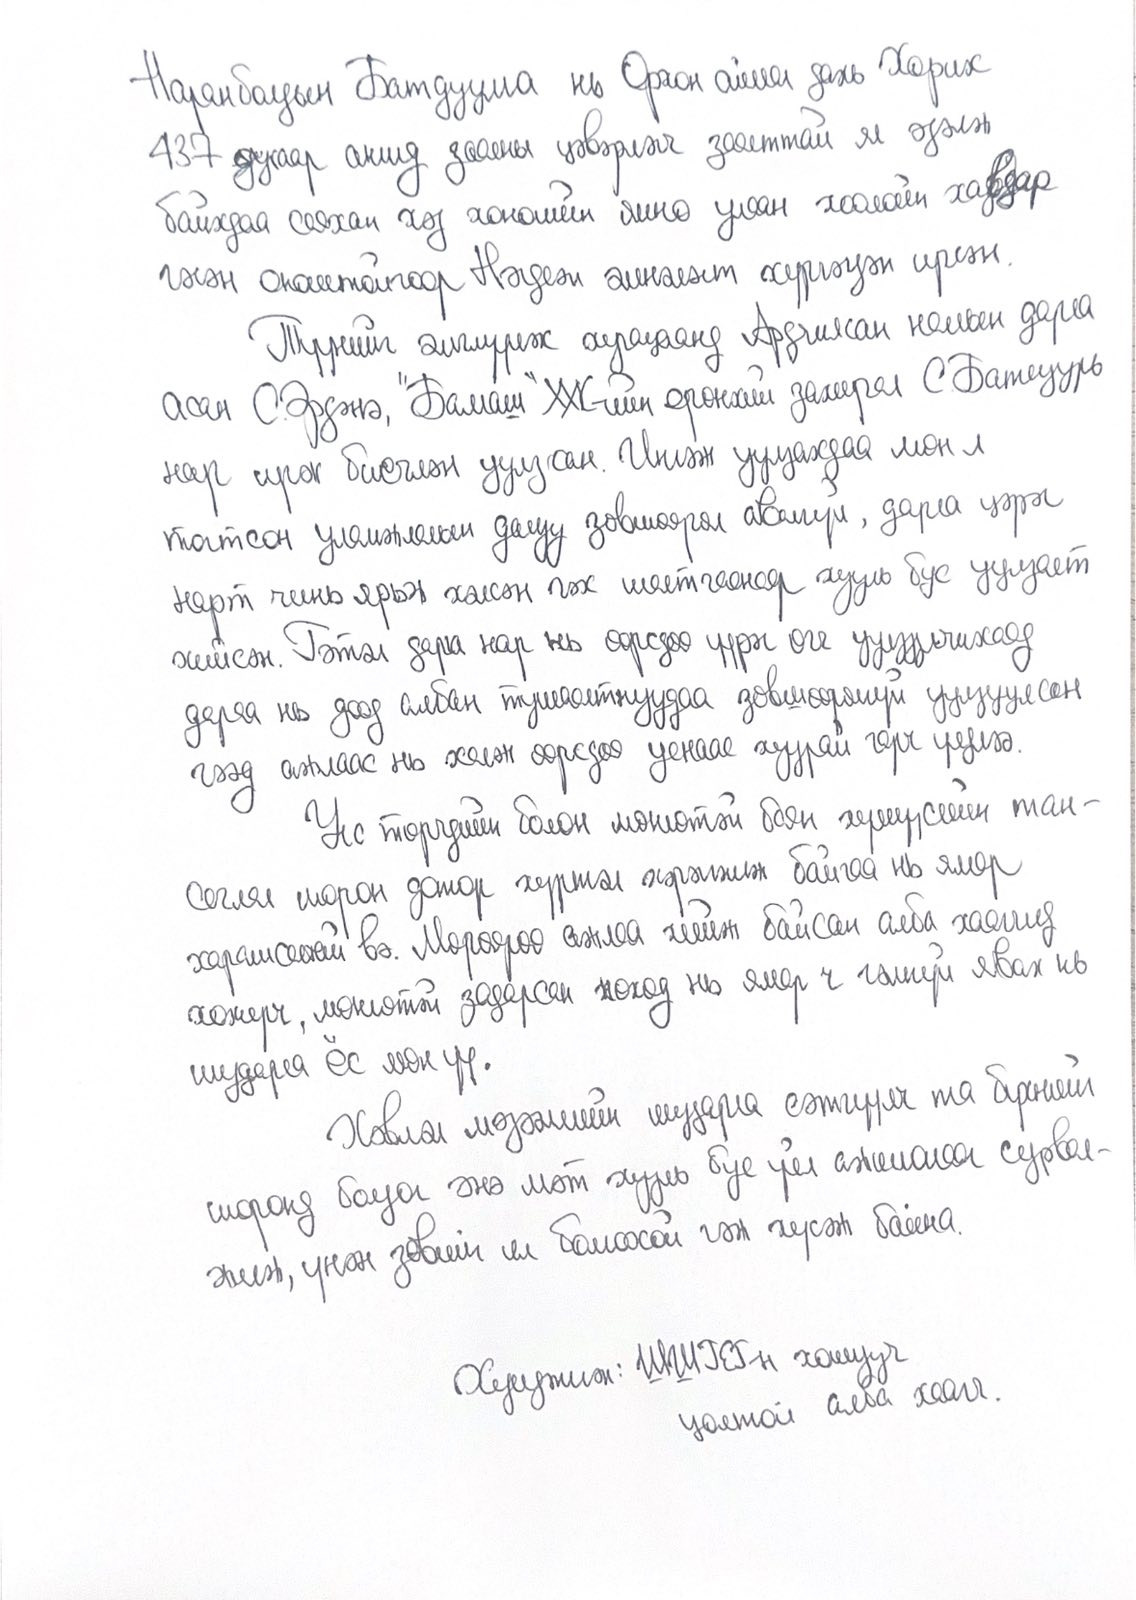 Наранбацын Батдуулга нь Орхон аймаг дахь Хорих
437 дугаар ангид заалны цэвэрлэгч заалттай ял эдэлж
байхдаа саяхан хэд хоногийн өмнө улаан хоолойн хавдар
гэсэн оноштойгоор Нэгдсэн эмнэлэгт хүргэгдэн ирсэн.
Түүнийг эмчлүүлж хугацаанд Ардчилсан намын дарга
асан С.Эрдэнэ, "Бамаш" ХХК-ийн ерөнхий захирал С.Батцуурь
нар ирж биечлэн уулзсан. Ингэж уулзахдаа мөн л
тогтсон уламжлалын дагуу зөвшөөрөл авалгүй, дарга цэрэг
нарт чинь ярьж хэлсэн гэх шалтгаанаар хууль бус уулзалт
хийсэн. Гэтэл дарга нар нь өөрсдөө үүрэг өгч уулзуулчихаад
дараа нь доод албан тушаалтнуудаа зөвшөөрөлгүй уулзуулсан
гээд ажлаас нь халж өөрсдөө уснаас хуурай гарч үлдлээ.
Улс төрчдийн болон мөнгөтэй баян хүмүүсийн тан-
сеглэл шорон дотор хүртэл хэрэгжиж байгаа нь ямар
харамсалтай вэ. Мөрөөрөө ажлаа хийж байсан алба хаагчид
хохирч, мөнгөтэй задарсан нөхөд нь ямар ч гэмгүй явах нь
шударга ёс мөн үү.
Хэвлэл мэдээллийн шударга сэтгүүлч та бүхнийг
шоронд болдог энэ мэт хууль бус үйл ажиллагааг сурвал-
жилж, үнэн зөвийг ил болгоосой гэж хүсэж байна.
Хүндэтгэж: ШШГЕГ-н хошууч
цолтой алба хаагч.